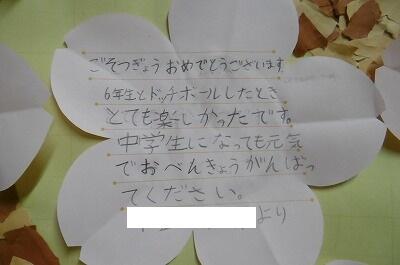 ごそつぎょうおめでとうございます。
6年生とドッチボールしたとき
とても楽しかったです。
中学生になっても元気
でおべんきょうがんばっ
てください。
より